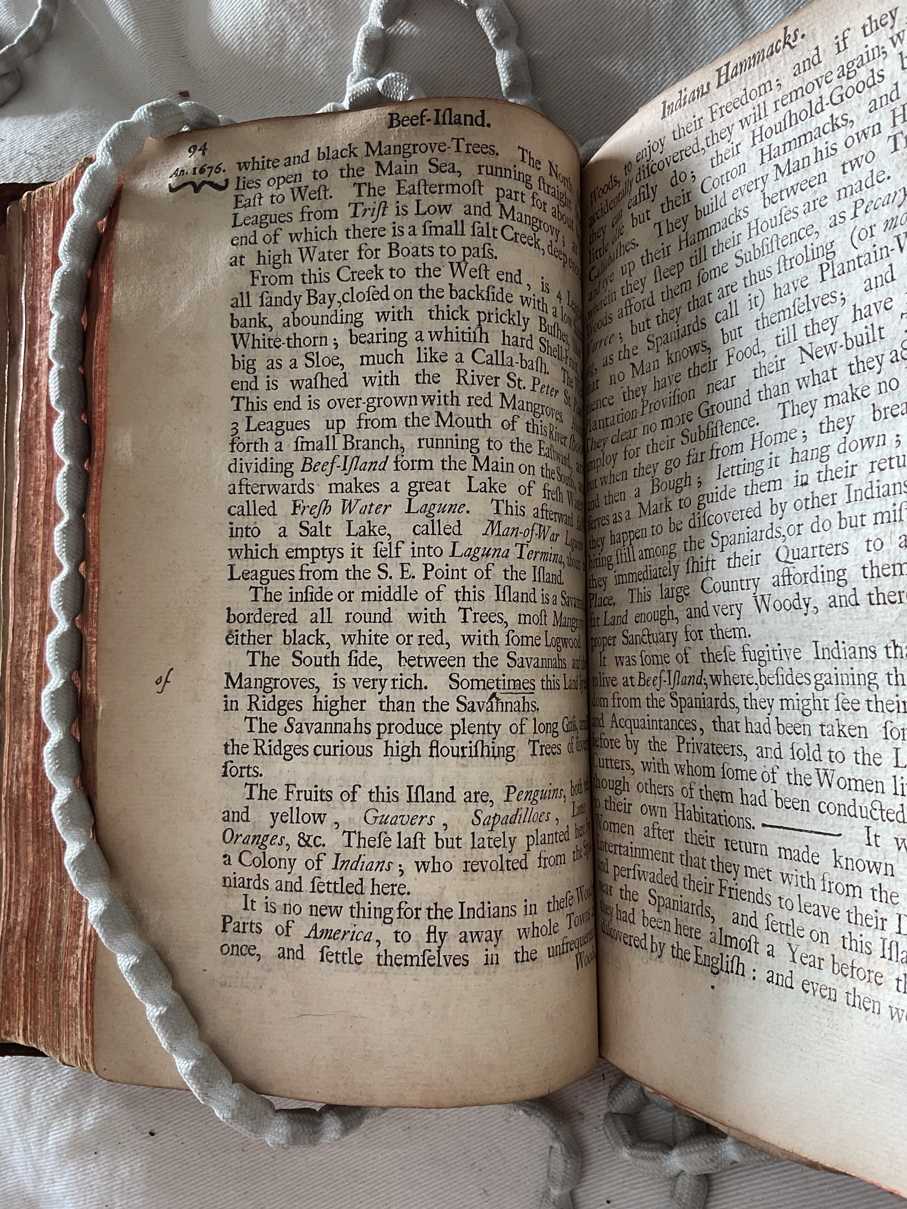 Beef-Iſland.
94
An. 1676.
white and black Mangrove-Trees. The North
lies open to the Main Sea, running ſtraight
Eaſt to Weſt. The Eaſtermoſt part for about
Leagues from Triſt is Low and Mangrovy; at
end of which there is a ſmall ſalt Creek, deep
at high Water for Boats to paſs.
From this Creek to the Weſt end, is 4
all ſandy Bay, cloſed on the backſide with a low
bank, abounding with thick prickly Buſhes,
White-thorn; bearing a whitiſh hard Shell-
big as a Sloe, much like a Calla-baſh. The
end is waſhed with the River St. Peter St.
This end is over-grown with red Mangroves.
3 Leagues up from the Mouth of this River
forth a ſmall Branch, running to the Eaſtward,
dividing Beef-Iſland form the Main on the South,
afterwards makes a great Lake of freſh
called Freſh Water Lagune. This afterward
into a Salt Lake, called Man-of-War
which emptys it ſelf into Laguna Termina,
Leagues from the S. E. Point of the Iſland.
The inſide or middle of this Iſland is a
bordered all round with Trees, moſt
either black, white or red, with ſome Logwood.
The South ſide, between the Savannahs
of
Mangroves, is very rich. Sometimes this Land
in Ridges higher than the Savannahs.
The Savannahs produce plenty of long
the Ridges curious high flouriſhing Trees of
ſorts.
The Fruits of this Iſland are, Penguins, both
and yellow, Guavers, Sapadilloes,
Oranges, &c. Theſe laſt but lately planted
a Colony of Indians; who revolted from the
niards and ſettled here.
It is no new thing for the Indians in theſe
Parts of America, to fly away whole
once, and ſettle themſelves in the
Indians Hammacks.
Woods, to enjoy their Freedom; and if they
accidentally diſcovered, they will remove again;
they can eaſily do; their Houſhold-Goods
little elſe but their Cotton Hammacks, and
They build every Man his own
and tye up their Hammacks between two
wherein they ſleep till their Houſes are made.
Woods afford them ſome Subſiſtence, as Pecary
but they that are thus ſtroling (or
as the Spaniards call it) have Plantain-
no Man knows, but themſelves; and
they have their Food, till they have
Plantation Proviſion near their New-built
They clear no more Ground than what they
employ for their Subſiſtence. They make no
but when they go far from Home; they
and then a Bough; letting it hang down;
ſerves as a Mark to guide them in their
they happen to be diſcovered by other Indians
ſtill among the Spaniards, or do but
they immediately ſhift their Quarters to
Place. This large Country affording them
fat Land enough, and very Woody, and
proper Sanctuary for them.
It was ſome of theſe fugitive Indians
to live at Beef-Iſland; where, beſides gaining
from the Spaniards, they might ſee their
and Acquaintances, that had been taken
before by the Privateers, and ſold to the
Cutters, with whom ſome of the Women
though others of them had been conducted
to their own Habitations. It
Women after their return made known
entertainment that they met with from the
and perſwaded their Friends to leave their
near the Spaniards, and ſettle on this
they had been here almoſt a Year before
diſcovered by the Engliſh: and even then